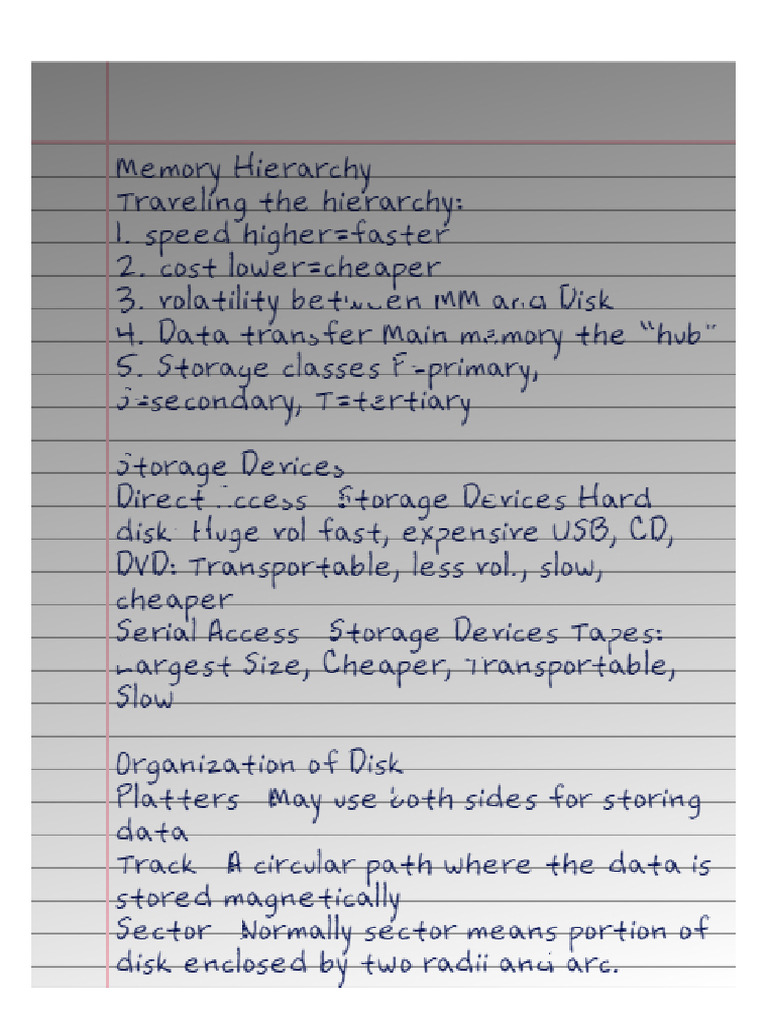 Memory Hierarchy
Traveling the hierarchy:
1. speed higher=faster
2. cost lower=cheaper
3. volatility between MM and Disk
4. Data transfer Main memory the "hub"
5. Storage classes P=primary,
S=secondary, T=tertiary
Storage Devices
Direct Access Storage Devices Hard
disk Huge vol fast, expensive USB, CD,
DVD: Transportable, less vol., slow,
cheaper
Serial Access Storage Devices Tapes:
Largest Size, Cheaper, Transportable,
Slow
Organization of Disk
Platters May use both sides for storing
data
Track A circular path where the data is
stored magnetically
Sector Normally sector means portion of
disk enclosed by two radii and arc.